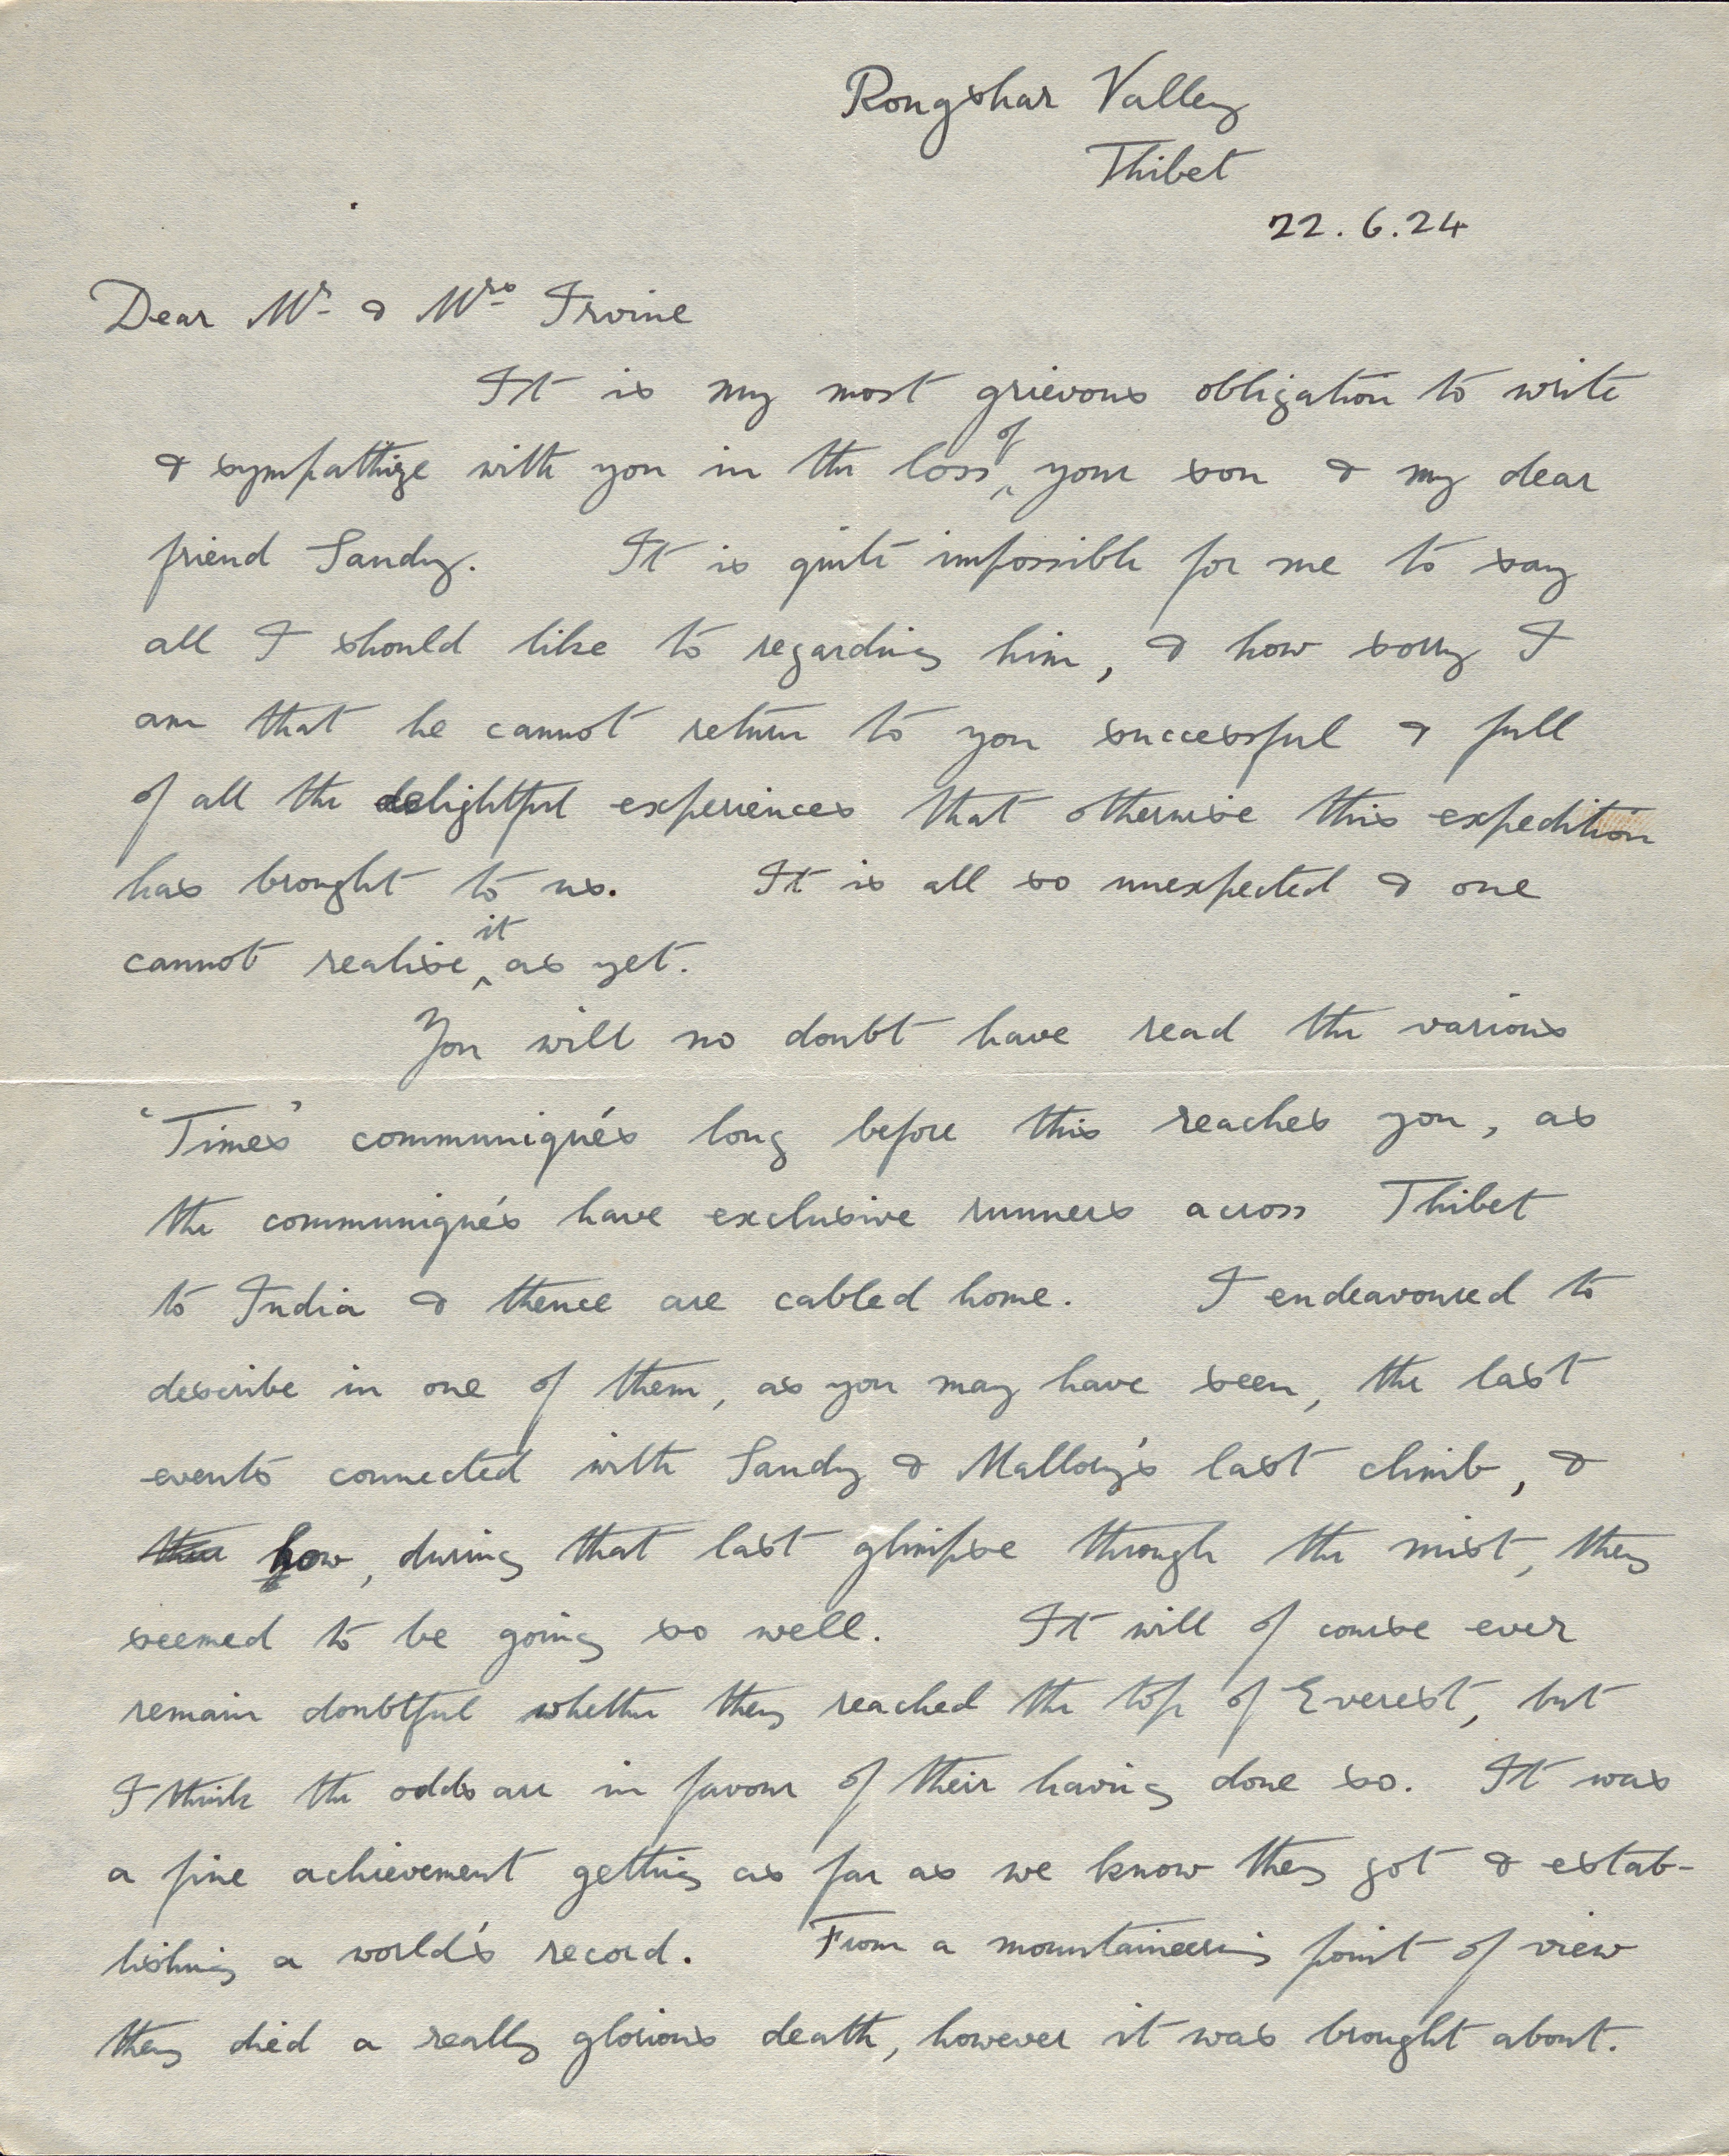 Rongshar Valley
Thibet
22.6.24
Dear Mr & Mrs Irvine
It is my most grievous obligation to write
& sympathize with you in the loss of your son & my dear
friend Sandy. It is quite impossible for me to say
all I should like to regarding him, & how sorry I
am that he cannot return to you successful & full
of all the delightful experiences that otherwise this expedition
has brought to us. It is all so unexpected & one
cannot realise it as yet.
You will no doubt have read the various
'Times' communiqués long before this reaches you, as
the communiqués have exclusive runners across Thibet
to India & thence are cabled home. I endeavoured to
describe in one of them, as you may have seen, the last
events connected with Sandy & Mallory's last climb, &
how, during that last glimpse through the mist, they
seemed to be going so well. It will of course ever
remain doubtful whether they reached the top of Everest, but
I think the odds are in favour of their having done so. It was
a fine achievement getting as far as we know they got & estab-
lishing a world's record. From a mountaineering point of view
they died a really glorious death, however it was brought about.